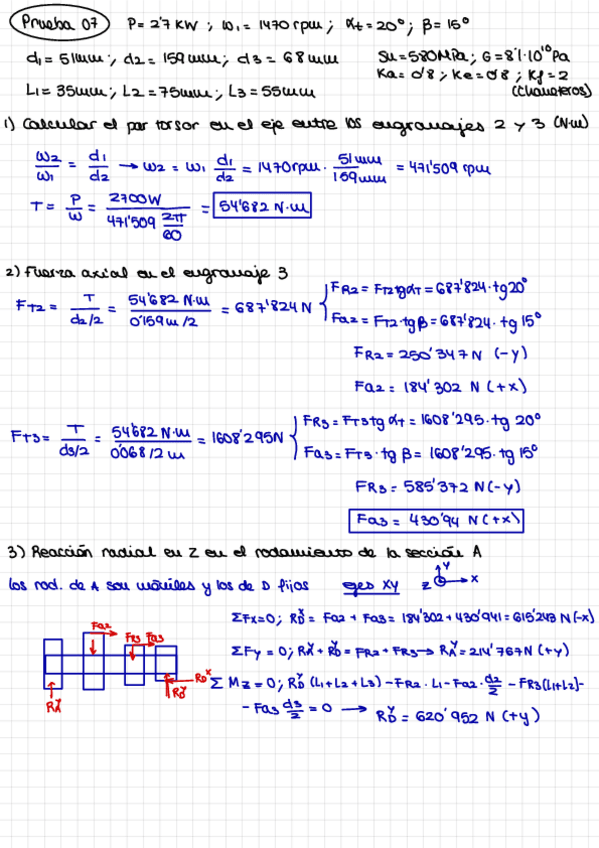 Prueba 07 P=2'7 KW ; ω₁=1470 rpm ; αt=20° ; β=15°
d₁=51mm ; d₂=159mm ; d₃=68mm Su=580MPa ; G=8'1·10¹⁰Pa
Ka=0'8 ; Ke=0'8 ; Kf=2
L₁=35mm ; L₂=75mm ; L₃=55mm (Chaveteros)
1) Calcular el par torsor en el eje entre los engranajes 2 y 3 (N·m)
ω₂/ω₁ = d₁/d₂ → ω₂ = ω₁ d₁/d₂ = 1470rpm · 51mm/159mm = 471'509 rpm
T = P/ω = 2700W / 471'509 2π/60 = 54'682 N·m
2) Fuerza axial en el engranaje 3
FT2 = T/d2/2 = 54'682 N·m / 0'159m/2 = 687'824 N { FR2 = FT2 tgαT = 687'824·tg20°
Fa2 = FT2 tgβ = 687'824·tg 15°
FR2 = 250'347 N (-y)
Fa2 = 184'302 N (+x)
FT3 = T/d3/2 = 54'682 N·m / 0'068/2 m = 1608'295N { FR3 = FT3 tg αT = 1608'295·tg 20°
Fa3 = FT3·tg β = 1608'295·tg 15°
FR3 = 585'372 N (-y)
Fa3 = 430'94 N (+x)
3) Reacción radial en Z en el rodamiento de la sección A
Los rod. de A son móviles y los de D fijos ejes XY Z Y X
ΣFx=0; RDˣ = Fa2 + Fa3 = 184'302 + 430'941 = 615'243 N (-x)
Fa2 FR3 Fa3
ΣFy = 0; RAʸ + RDʸ = FR2 + FR3 → RAʸ = 214'767N (+y)
RAʸ RDʸ RDˣ
Σ Mz = 0; RDʸ (L1+L2+L3) - FR2·L1 - Fa2·d2/2 - FR3(L1+L2)-
- Fa3 d3/2 = 0 → RDʸ = 620'952 N (+y)